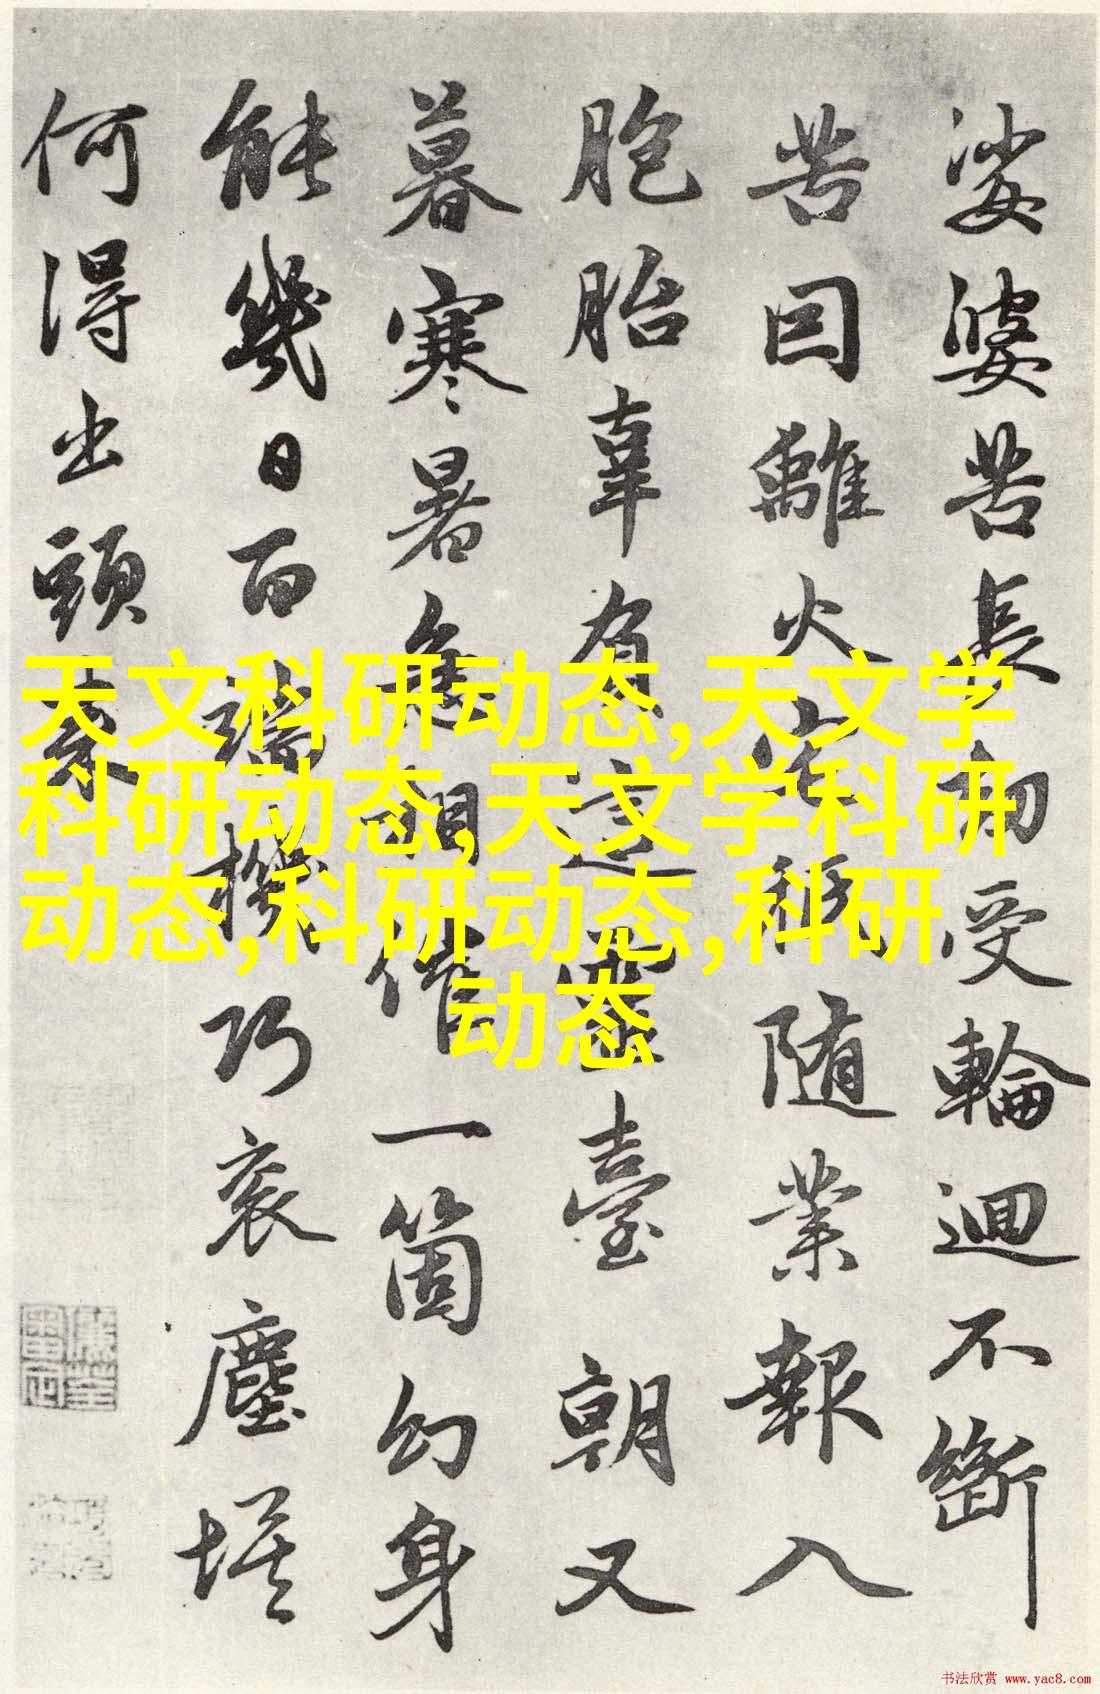 娑婆苦長劫受輪迴不斷
苦因離火宅秪随業報入
胞胎辜有這靈臺朝又
暮寒暑急相催一箇幻身
能幾日百端機巧衮塵埃
何得出頭来
天文科研动态,天文学
科研动态,天文学科研
动态,科研动态,科研
动态
书法欣赏 www.yac8.com